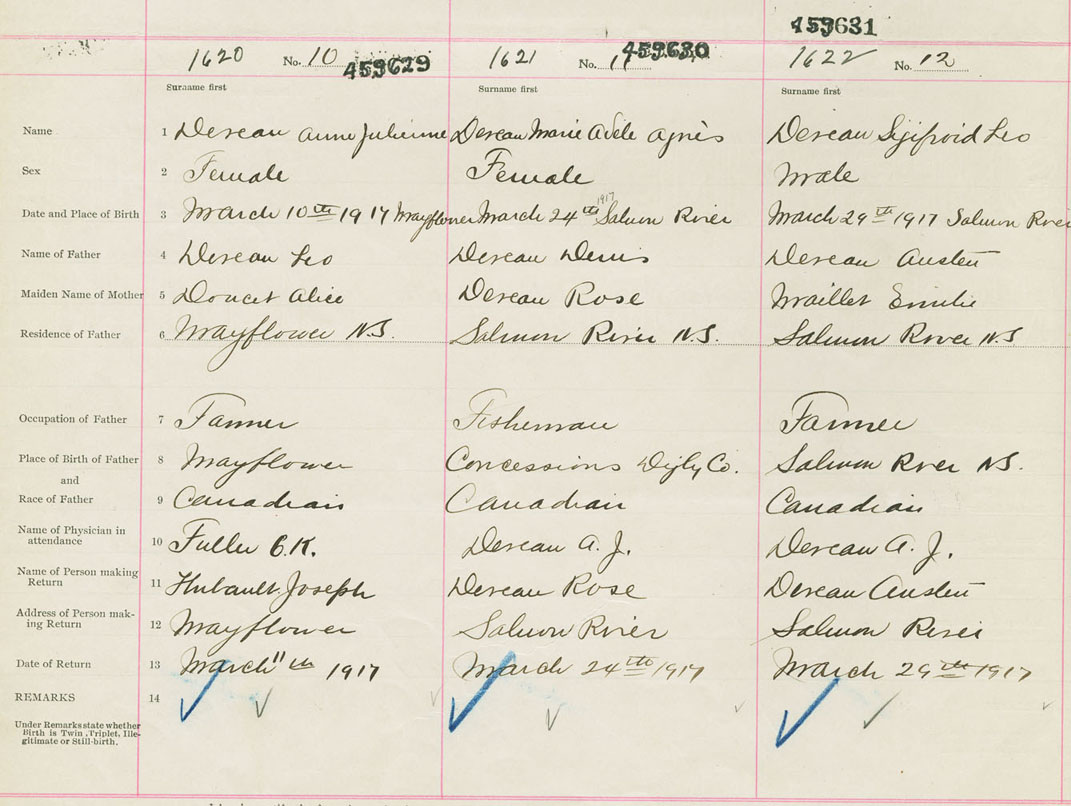 459631
1620 No. 10 459629 1621 No. 11 459630 1622 No. 12
Surname first Surname first Surname first
Name 1 Deveau Anne Julienne Deveau Marie Adele Agnès Deveau Sigifroid Leo
Sex 2 Female Female Male
Date and Place of Birth 3 March 10th 1917 Mayflower March 24th 1917 Salmon River March 29th 1917 Salmon River
Name of Father 4 Deveau Leo Deveau Denis Deveau Austen
Maiden Name of Mother 5 Doucet Alice Deveau Rose Maillet Emilie
Residence of Father 6 Mayflower N.S. Salmon River N.S. Salmon River N.S
Occupation of Father 7 Farmer Fisherman Farmer
Place of Birth of Father 8 Mayflower Concessions Digby Co. Salmon River N.S.
and
Race of Father 9 Canadian Canadian Canadian
Name of Physician in
attendance 10 Fuller C.K. Deveau A. J. Deveau A. J.
Name of Person making
Return 11 Thibault Joseph Deveau Rose Deveau Austen
Address of Person mak-
ing Return 12 Mayflower Salmon River Salmon River
Date of Return 13 March 11th 1917 March 24th 1917 March 29th 1917
REMARKS 14
Under Remarks state whether
Birth is Twin, Triplet, Ille-
gitimate or Still-birth.